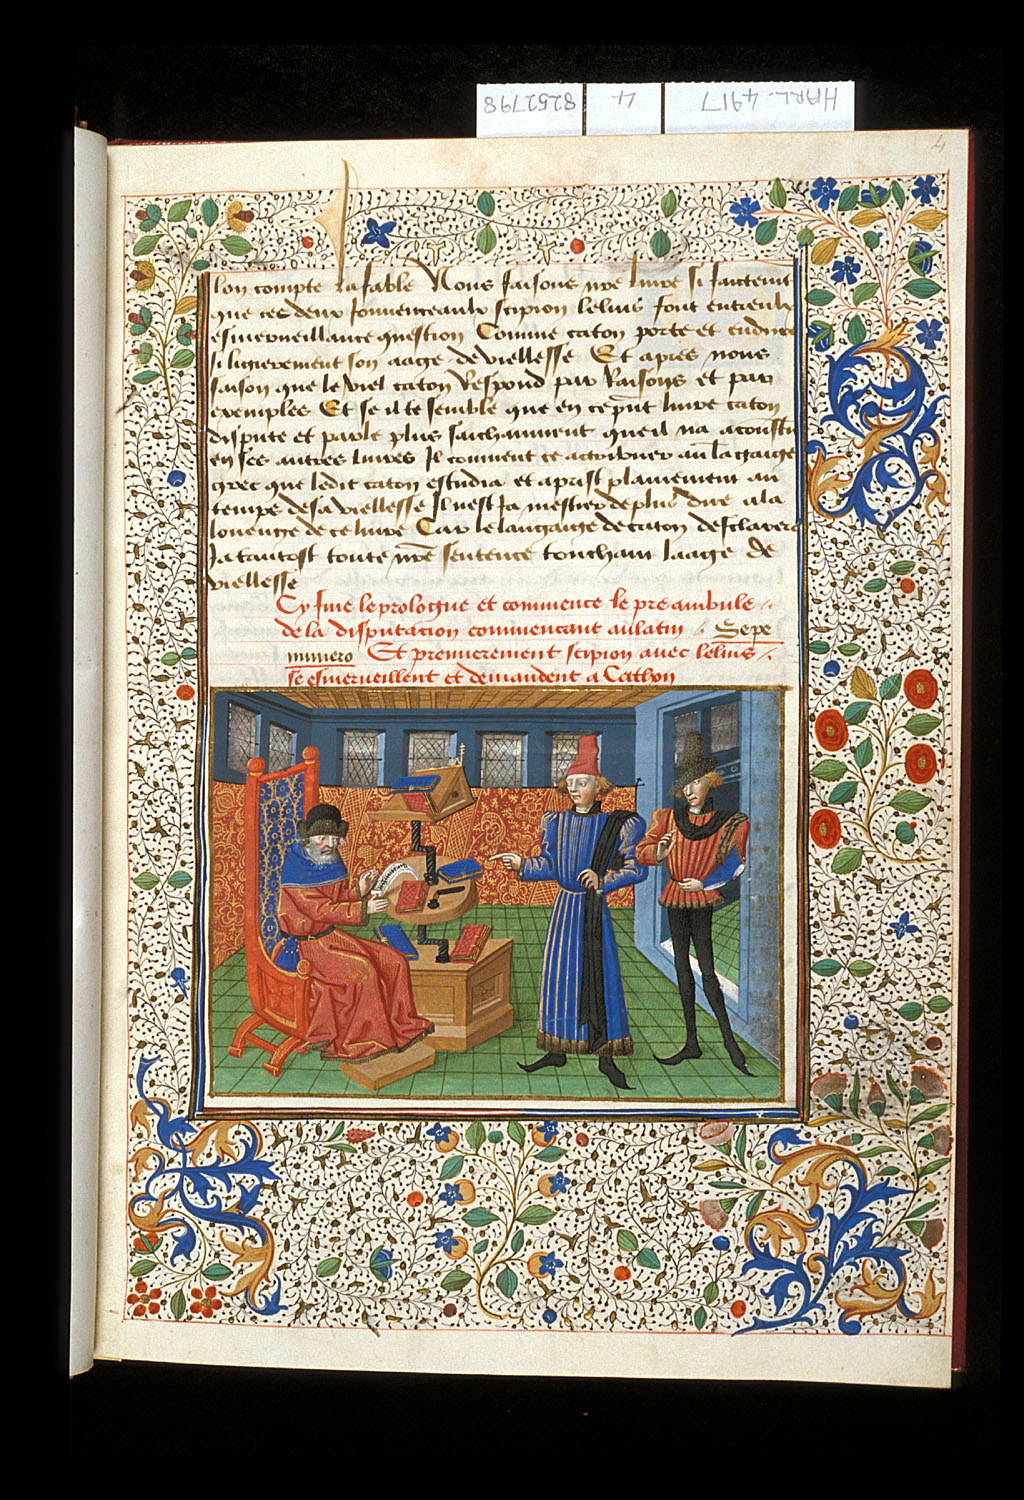 HARL. 4917 4 8252798
4
lon compte la fable Nous faisons nre livre si sauctenit
que ces deux jonnenceaulx scipion lelius font entreulx
esmerveillance question Comme caton porte et endure
si ligierement son aage de viellesse Et apres nous
faison que le viel caton Respond par Raisons et par
exemples Et se il te semble que en ce pnt livre caton
dispute et parle plus saichanment que il na acoustu
en ses autres livres Il convient ce attribuer au langaige
grec que ledit caton estudia et aprist plainement au
temps de sa viellesse Il nest ja mestier de plus dire a la
louenge de ce livre Car le langaige de caton desclarera
Ja tantost toute nre sentence touchant laage de
viellesse
Cy fine le prologue et commence le preambule
de la disputacion commencant au latin Sepe
numero Et premierement scipion avec lelius
se esmerveillent et demandent a Cathon